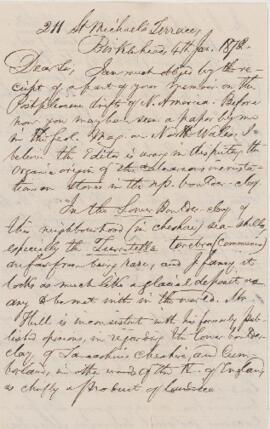 211 St Michael's Terrace,
Birkenhead, 4th Jan. 1878.
Dear Sir, I am much obliged by the re-
ceipt of a part of your Memoir on the
Post-pliocene drifts of N. America. Before
now you may have seen a paper by me
in the Geol. Mag. on North Wales. I
believe the Editor is wrong in disputing the
organic origin of the
on stones in the N.W. boulder-clay.
In the Lower Boulder-clay of
this neighbourhood (in Cheshire) sea-shells,
especially the Turritella terebra (communis)
are far from being rare, and I fancy it
looks as much like a glacial deposit as
any to be met with in the world. Mr
Hull is inconsistent with his formerly pub-
lished opinions, in regarding the Lower boulder
clay of Lancashire Cheshire, and Cum-
berland, in the of the N. of England,
as chiefly a product of land-ice